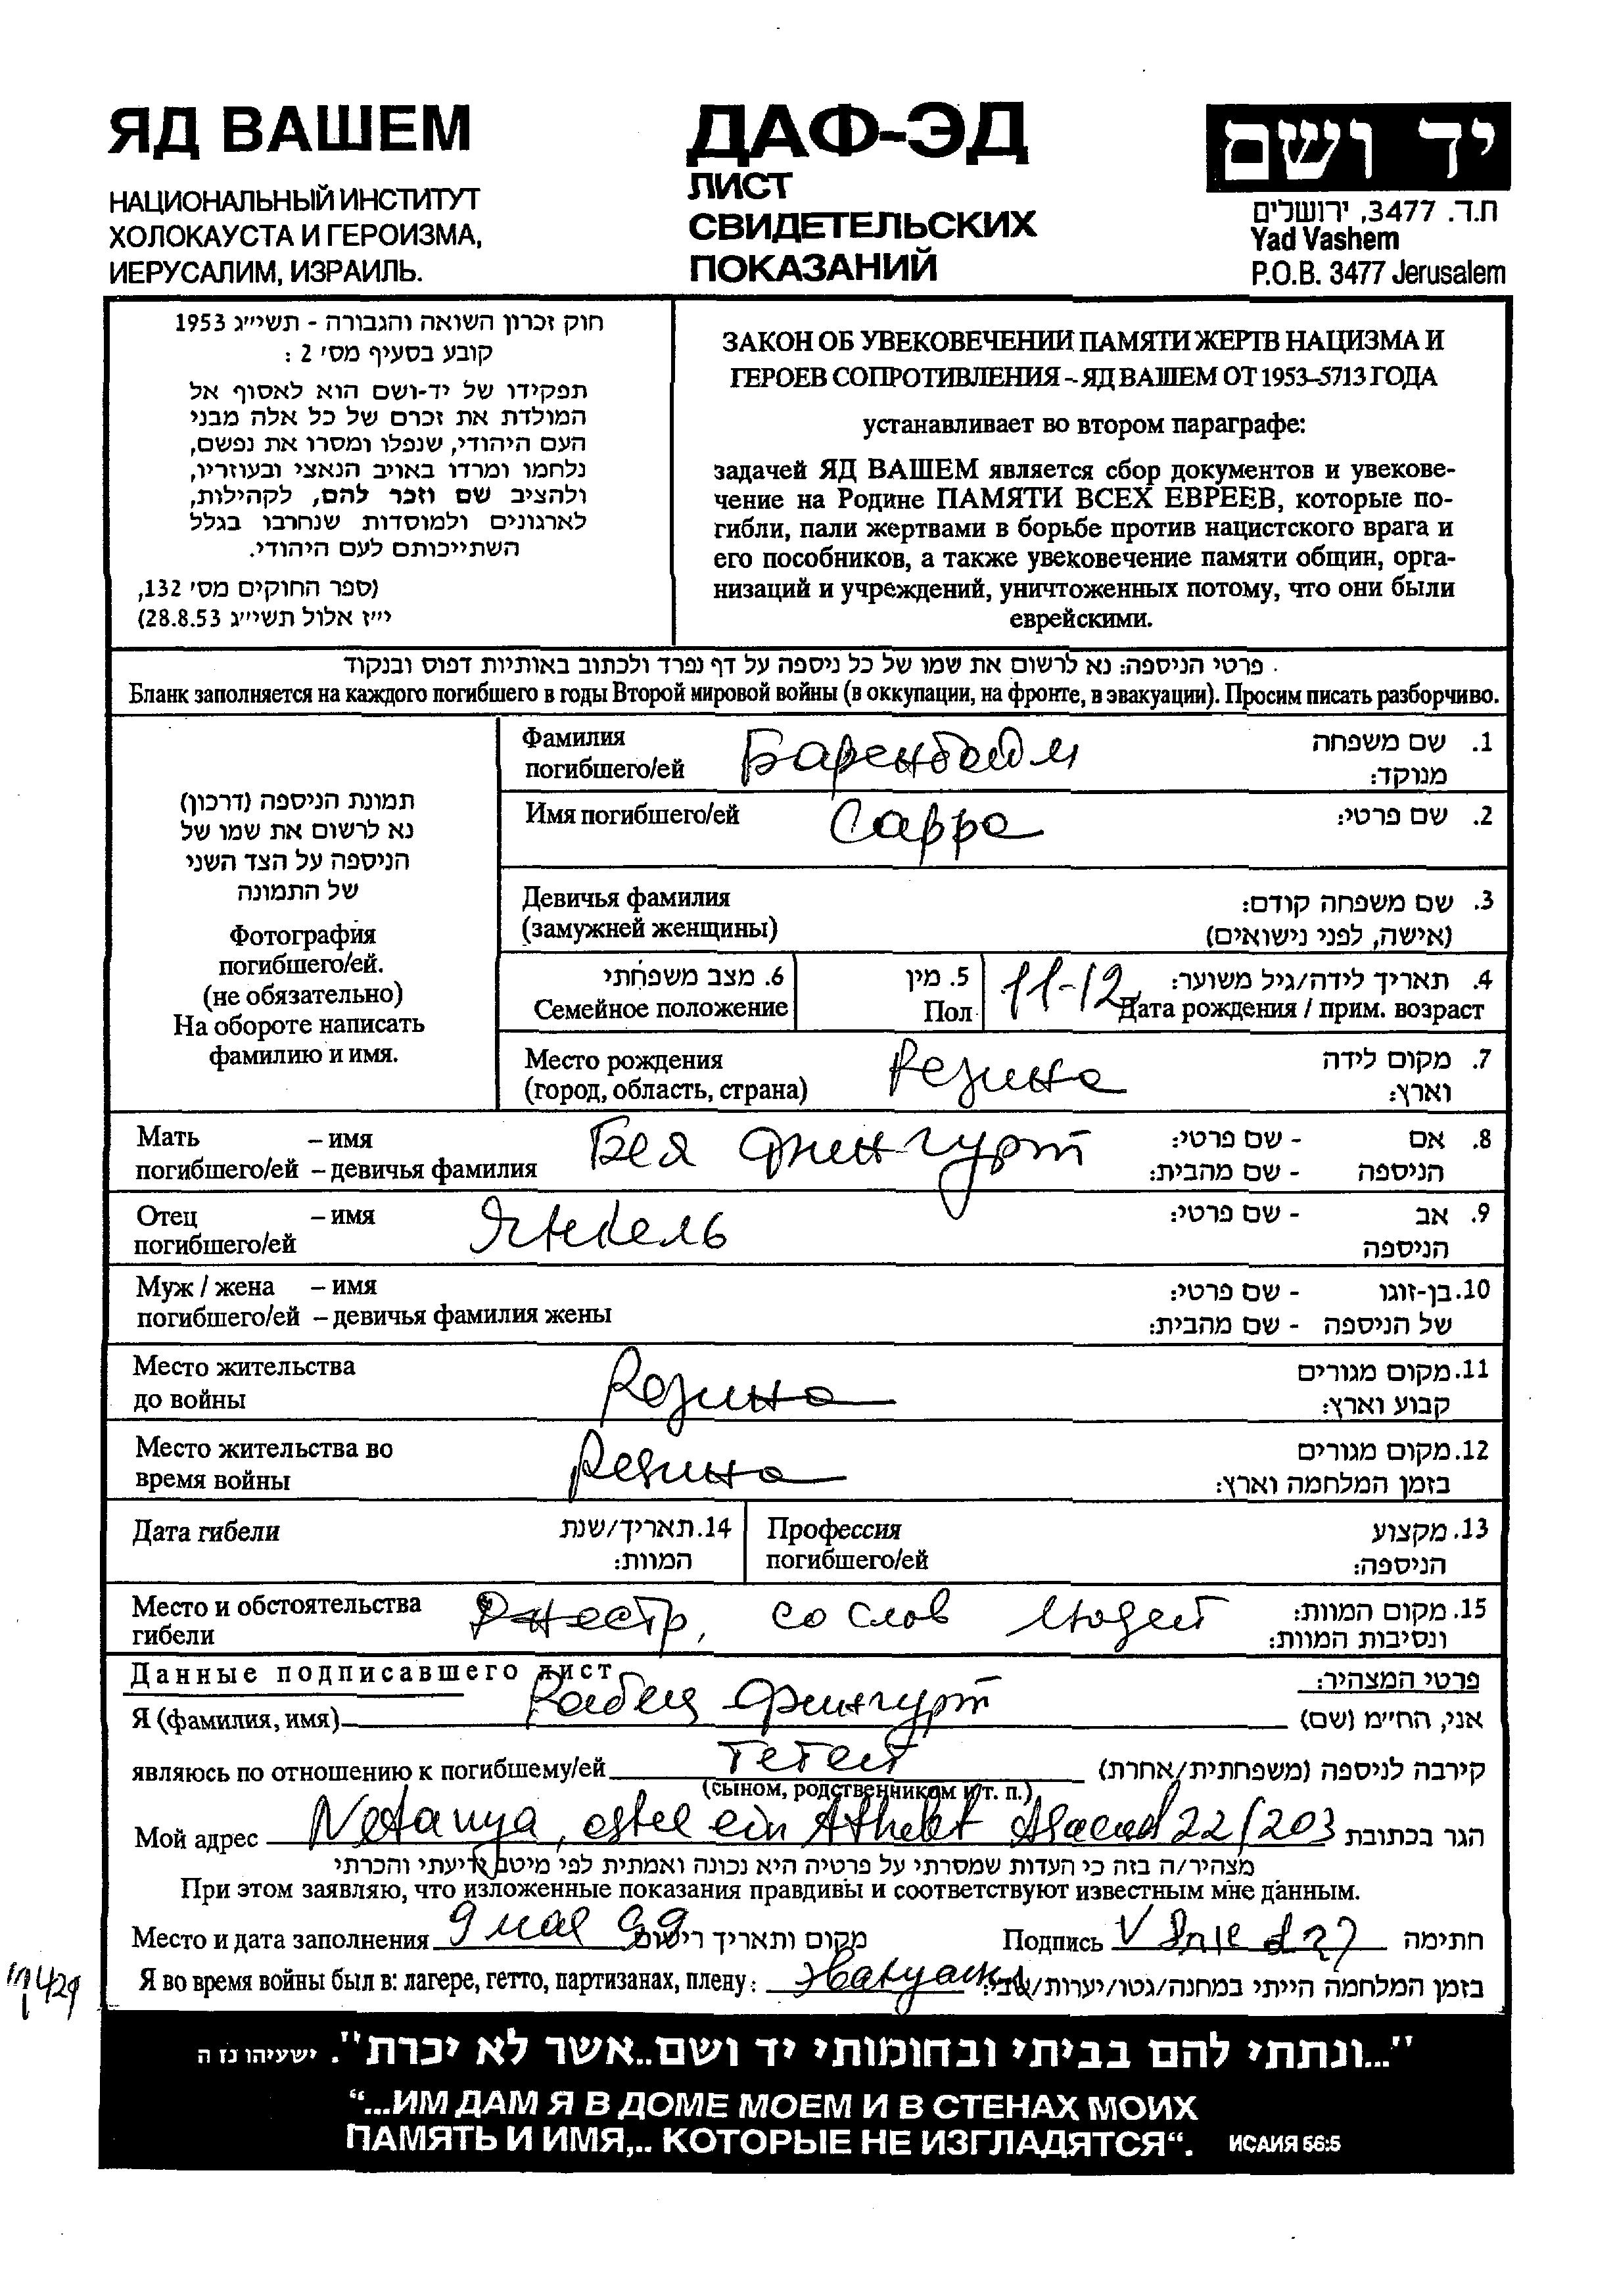 ЯД ВАШЕМ
НАЦИОНАЛЬНЫЙ ИНСТИТУТ
ХОЛОКАУСТА И ГЕРОИЗМА,
ИЕРУСАЛИМ, ИЗРАИЛЬ.
ДАФ-ЭД
ЛИСТ
СВИДЕТЕЛЬСКИХ
ПОКАЗАНИЙ
יד ושם
ת.ד. 3477, ירושלים
Yad Vashem
P.O.B. 3477 Jerusalem
חוק זכרון השואה והגבורה - תשי״ג 1953
קובע בסעיף מס׳ 2 :
תפקידו של יד-ושם הוא לאסוף אל
המולדת את זכרם של כל אלה מבני
העם היהודי, שנפלו ומסרו את נפשם,
נלחמו ומרדו באויב הנאצי ובעוזריו,
ולהציב שם וזכר להם, לקהילות,
לארגונים ולמוסדות שנחרבו בגלל
השתייכותם לעם היהודי.
(ספר החוקים מס׳ 132,
י״ז אלול תשי״ג 28.8.53)
ЗАКОН ОБ УВЕКОВЕЧЕНИИ ПАМЯТИ ЖЕРТВ НАЦИЗМА И
ГЕРОЕВ СОПРОТИВЛЕНИЯ – ЯД ВАШЕМ ОТ 1953–5713 ГОДА
устанавливает во втором параграфе:
задачей ЯД ВАШЕМ является сбор документов и увекове-
чение на Родине ПАМЯТИ ВСЕХ ЕВРЕЕВ, которые по-
гибли, пали жертвами в борьбе против нацистского врага и
его пособников, а также увековечение памяти общин, орга-
низаций и учреждений, уничтоженных потому, что они были
еврейскими.
פרטי הניספה: נא לרשום את שמו של כל ניספה על דף נפרד ולכתוב באותיות דפוס ובנקוד
Бланк заполняется на каждого погибшего в годы Второй мировой войны (в оккупации, на фронте, в эвакуации). Просим писать разборчиво.
תמונת הניספה (דרכון)
נא לרשום את שמו של
הניספה על הצד השני
של התמונה
Фотография
погибшего/ей.
(не обязательно)
На обороте написать
фамилию и имя.
Фамилия Баренбойм 1. שם משפחה
погибшего/ей מנוקד:
Имя погибшего/ей Сарра 2. שם פרטי:
Девичья фамилия 3. שם משפחה קודם:
(замужней женщины) (אישה, לפני נישואים)
6. מצב משפחתי 5. מין 11-12 4. תאריך לידה/גיל משוער:
Семейное положение Пол Дата рождения / прим. возраст
Место рождения Резина 7. מקום לידה
(город, область, страна) וארץ:
Мать – имя Бея Фингурт - שם פרטי: 8. אם
погибшего/ей – девичья фамилия - שם מהבית: הניספה
Отец – имя Янкель - שם פרטי: 9. אב
погибшего/ей הניספה
Муж / жена – имя - שם פרטי: 10. בן-זוגו
погибшего/ей – девичья фамилия жены - שם מהבית: של הניספה
Место жительства Резина 11. מקום מגורים
до войны קבוע וארץ:
Место жительства во Резина 12. מקום מגורים
время войны בזמן המלחמה וארץ:
Дата гибели 14. תאריך/שנת Профессия 13. מקצוע
המוות: погибшего/ей הניספה:
Место и обстоятельства Днестр, со слов людей 15. מקום המוות:
гибели ונסיבות המוות:
Данные подписавшего лист פרטי המצהיר:
Я (фамилия, имя) Фингурт אני, הח״מ (שם)
являюсь по отношению к погибшему/ей тётей קירבה לניספה (משפחתית/אחרת)
(сыном, родственником и т. п.)
Мой адрес Netanya, 22/203 הגר בכתובת
מצהיר/ה בזה כי העדות שמסרתי על פרטיה היא נכונה ואמתית לפי מיטב ידיעתי והכרתי
При этом заявляю, что изложенные показания правдивы и соответствуют известным мне данным.
Место и дата заполнения 9 мая 99 מקום ותאריך רישום Подпись חתימה
Я во время войны был в: лагере, гетто, партизанах, плену: эвакуации בזמן המלחמה הייתי במחנה/גטו/יערות/שבי:
"...ונתתי להם בביתי ובחומותי יד ושם..אשר לא יכרת". ישעיהו נז ה
“...ИМ ДАМ Я В ДОМЕ МОЕМ И В СТЕНАХ МОИХ
ПАМЯТЬ И ИМЯ,.. КОТОРЫЕ НЕ ИЗГЛАДЯТСЯ“. ИСАИЯ 56:5